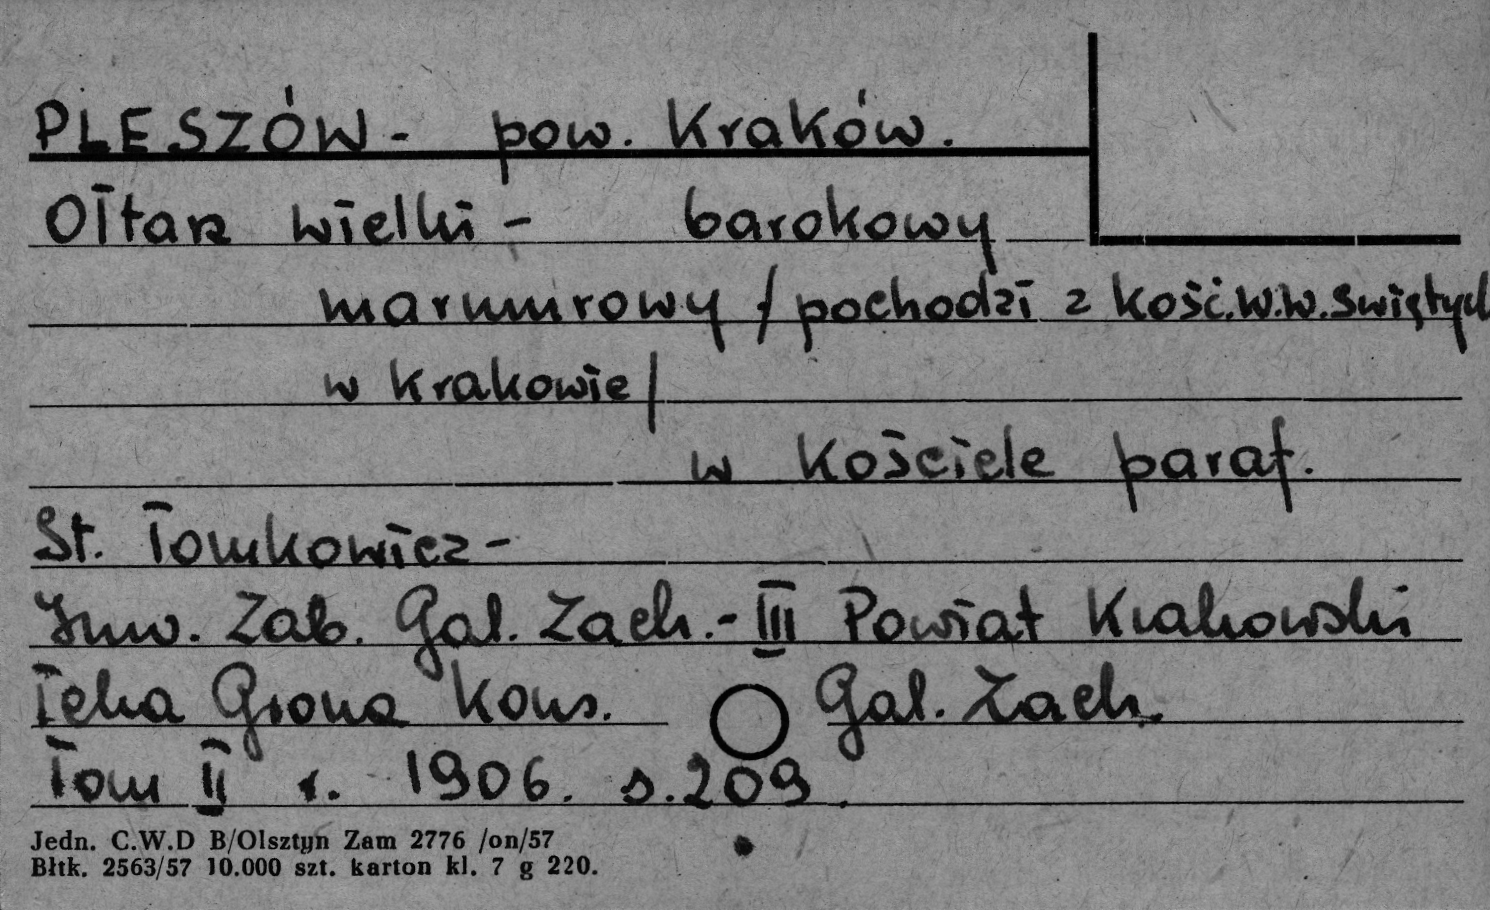 PLESZÓW - pow. Kraków.
Ołtarz wielki - barokowy
marmurowy / pochodzi z kość. W.W. Świętych
w Krakowie /
w kościele paraf.
St. Tomkowicz -
Inw. Zab. Gal. Zach. - III Powiat Krakowski
Teka Grona Kons. Gal. Zach.
Tom II r. 1906. s. 209.
Jedn. C.W.D B/Olsztyn Zam 2776 /on/57
Błtk. 2563/57 10.000 szt. karton kl. 7 g 220.